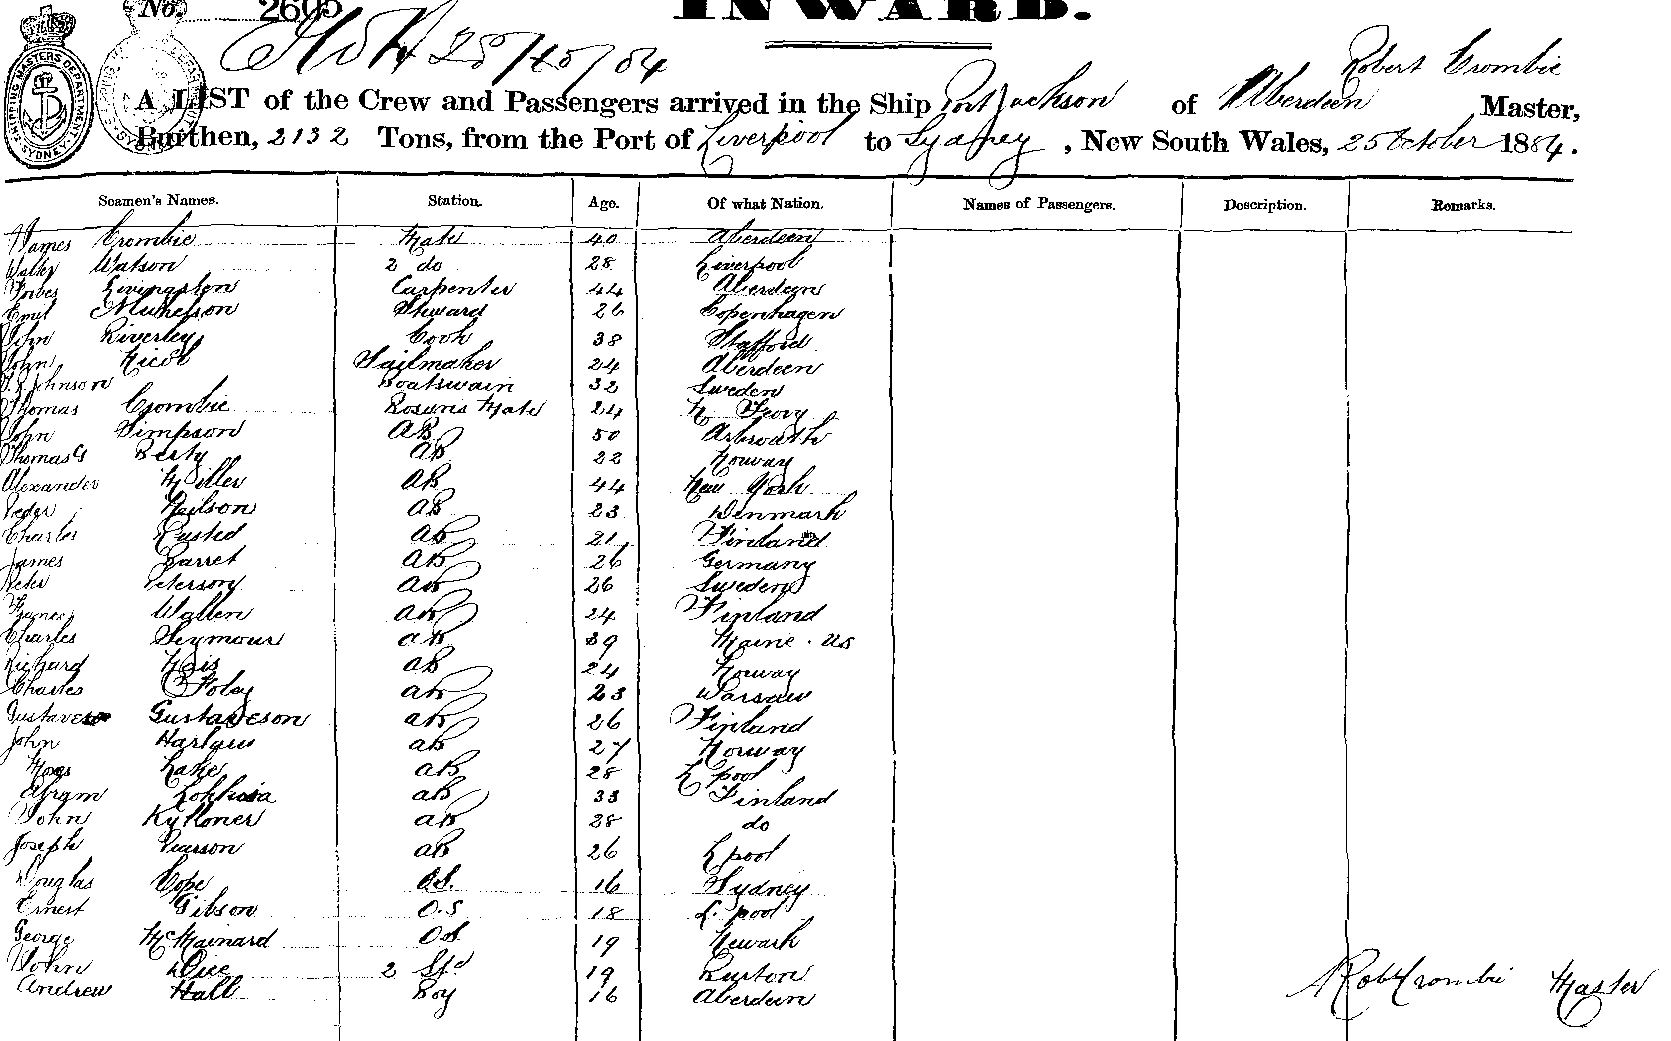 No. 2605
INWARD.
25/10/84
Robert Crombie
A LIST of the Crew and Passengers arrived in the Ship Port Jackson of Aberdeen Master,
Burthen, 2132 Tons, from the Port of Liverpool to Sydney, New South Wales, 25 October 1884.
SHIPPING MASTERS DEPARTMENT SYDNEY
Seamen's Names. Station. Age. Of what Nation. Names of Passengers. Description. Remarks.
James Crombie Mate 40 Aberdeen
Walter Watson 2 do 28 Liverpool
Forbes Livingston Carpenter 44 Aberdeen
Emil Steward 26 Copenhagen
John Riverley Cook 38 Stafford
John Nicol Sailmaker 24 Aberdeen
Johnson Boatswain 32 Sweden
Thomas Crombie Bosuns Mate 24 N
John Simpson AB 50 Arbroath
Thomas G Berty AB 22 Norway
Alexander Miller AB 44 New York
Peder Neilson AB 23 Denmark
Charles AB 21 Finland
James Barret AB 26 Germany
Peter Peterson AB 26 Sweden
Wallen AB 24 Finland
Charles Seymour AB 39 Maine. US
Richard AB 24 Norway
Charles Foley AB 23 Warsaw
Gustaveson AB 26 Finland
John AB 27 Norway
Lake AB 28 L'pool
Abram AB 33 Finland
John AB 28 do
Joseph Pearson AB 26 L'pool
Douglas Cope O.S. 16 Sydney
Ernest Gibson O.S 18 L'pool
George McMainard OS 19 Newark
John Dice 2 Std 19 Burton
Andrew Hall Boy 16 Aberdeen
Rob Crombie Master